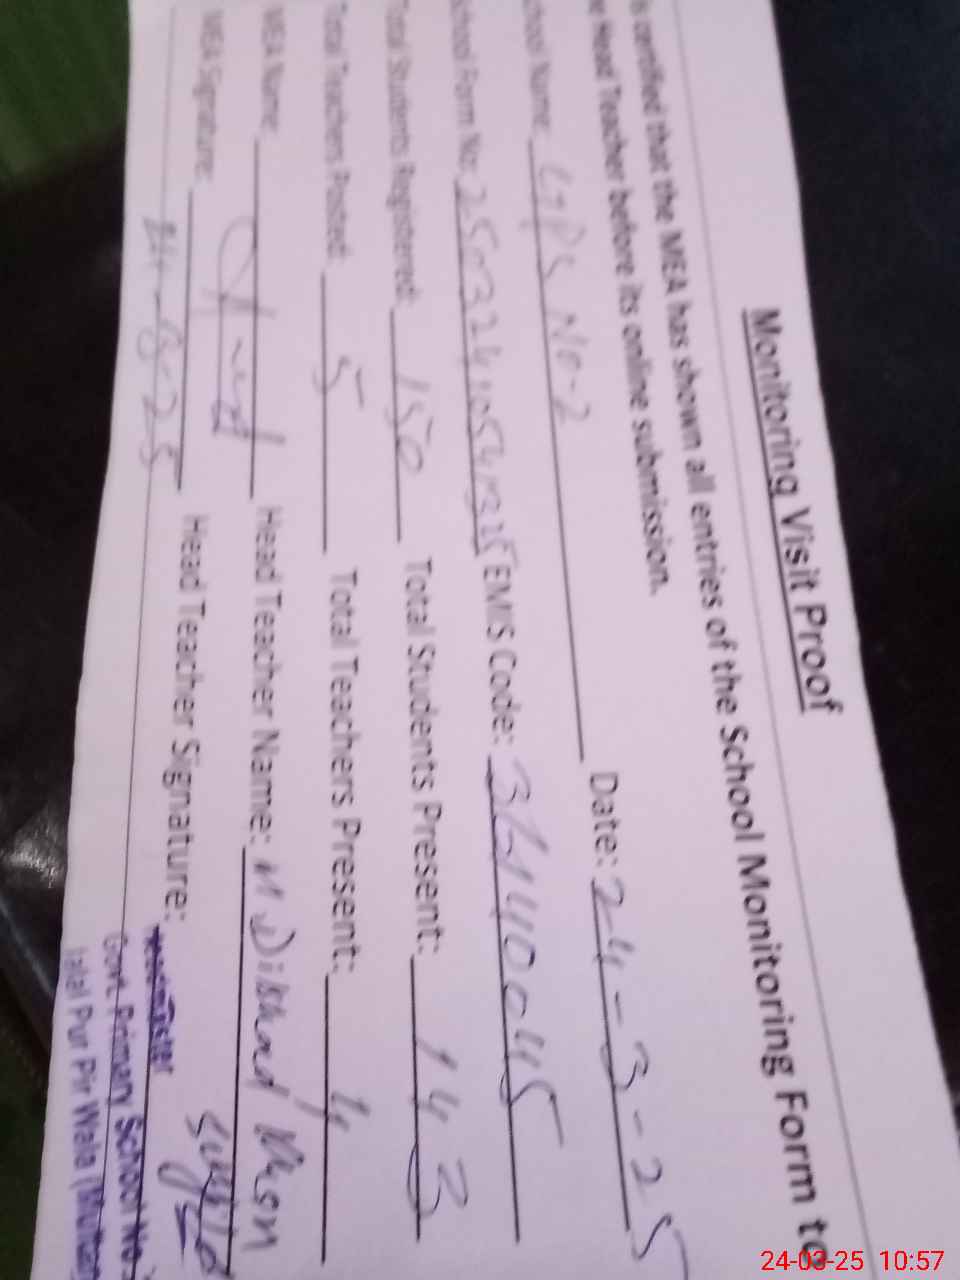 Monitoring Visit Proof
is certified that the MEA has shown all entries of the School Monitoring Form to
Head Teacher before its online submission.
chool Name: GPS No-2 Date: 24-3-25
School Form No: EMIS Code:
Total Students Registered: 150 Total Students Present: 143
Total Teachers Posted: 5 Total Teachers Present: 4
MEA Name: Head Teacher Name: M Dilshad
MEA Signature: Head Teacher Signature:
24-3-25
Headmaster
Govt. Primary School No.
Jalal Pur Pir Wala (Multan
24-03-25 10:57